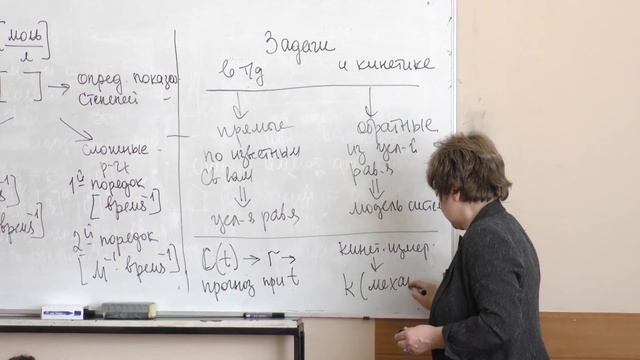 [моль/л]
[ ] → опред. показа-
степеней -
сложные -
р-ях
1й порядок
[время⁻¹]
2й порядок
[М⁻¹ время⁻¹]
Задачи
в т/д и кинетике
прямые
по известным
св вам
усл-я равя
обратные
из усл-й
рав-я
модель сист
C(t) → r →
прогноз при t
кинет. измер.
k (меха